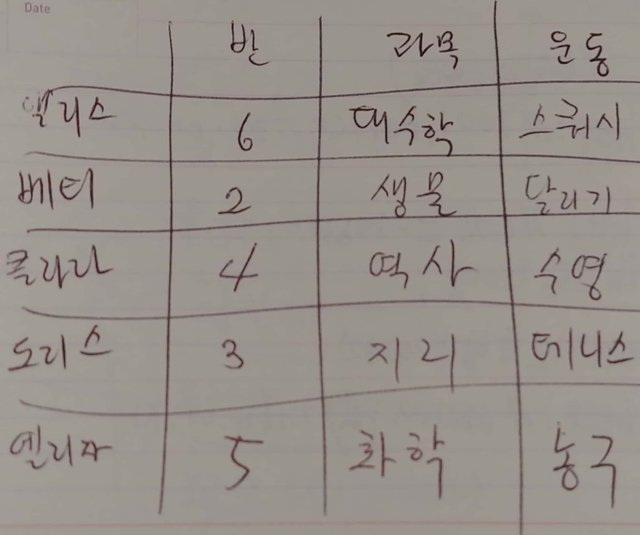 Date
반 과목 운동
앨리스 6 대수학 스쿼시
베티 2 생물 달리기
클라라 4 역사 수영
도리스 3 지리 테니스
엘리자 5 화학 농구